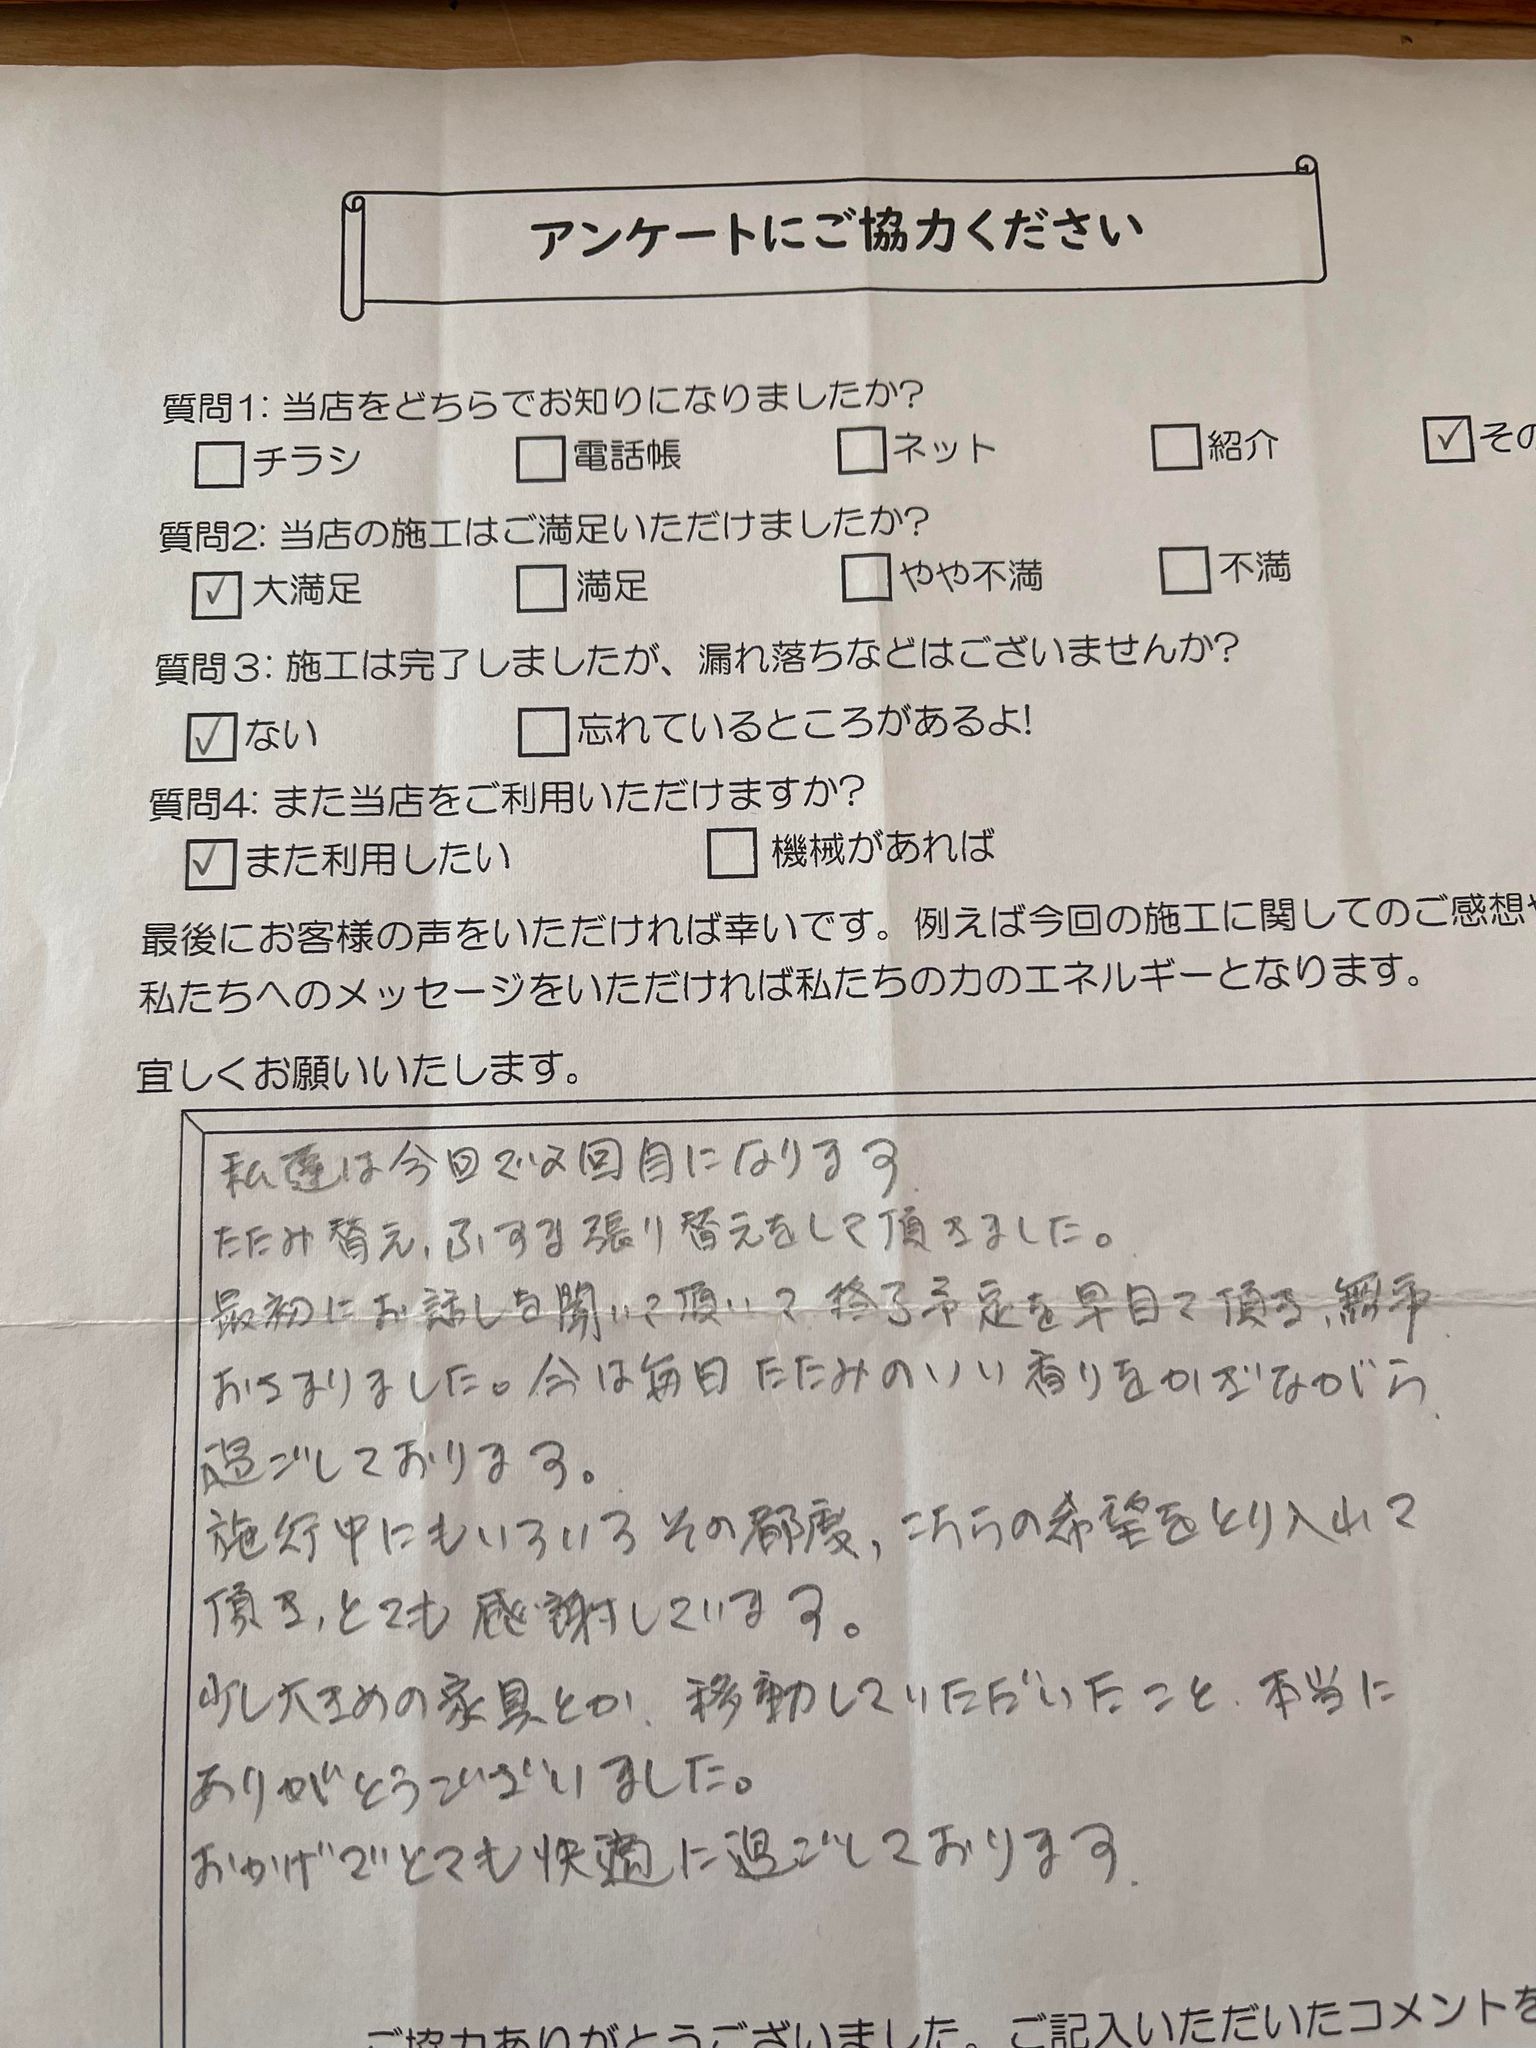 アンケートにご協力ください
質問1: 当店をどちらでお知りになりましたか?
チラシ 電話帳 ネット 紹介 ✓その
質問2: 当店の施工はご満足いただけましたか?
✓大満足 満足 やや不満 不満
質問3: 施工は完了しましたが、漏れ落ちなどはございませんか?
✓ない 忘れているところがあるよ!
質問4: また当店をご利用いただけますか?
✓また利用したい 機械があれば
最後にお客様の声をいただければ幸いです。例えば今回の施工に関してのご感想や
私たちへのメッセージをいただければ私たちの力のエネルギーとなります。
宜しくお願いいたします。
私達は今回で2回目になります
たたみ替え、ふすま張り替えをして頂きました。
最初にお話しを聞いて頂いて、終了予定を早目て頂き、無事
おさまりました。今は毎日たたみのいい香りをかぎながら
過ごしております。
施行中にもいろいろその都度、こちらの希望をとり入れて
頂き、とても感謝しています。
少し大きめの家具とか、移動していただいたこと、本当に
ありがとうございました。
おかげでとても快適に過ごしております。
ご協力ありがとうございました。ご記入いただいたコメントを